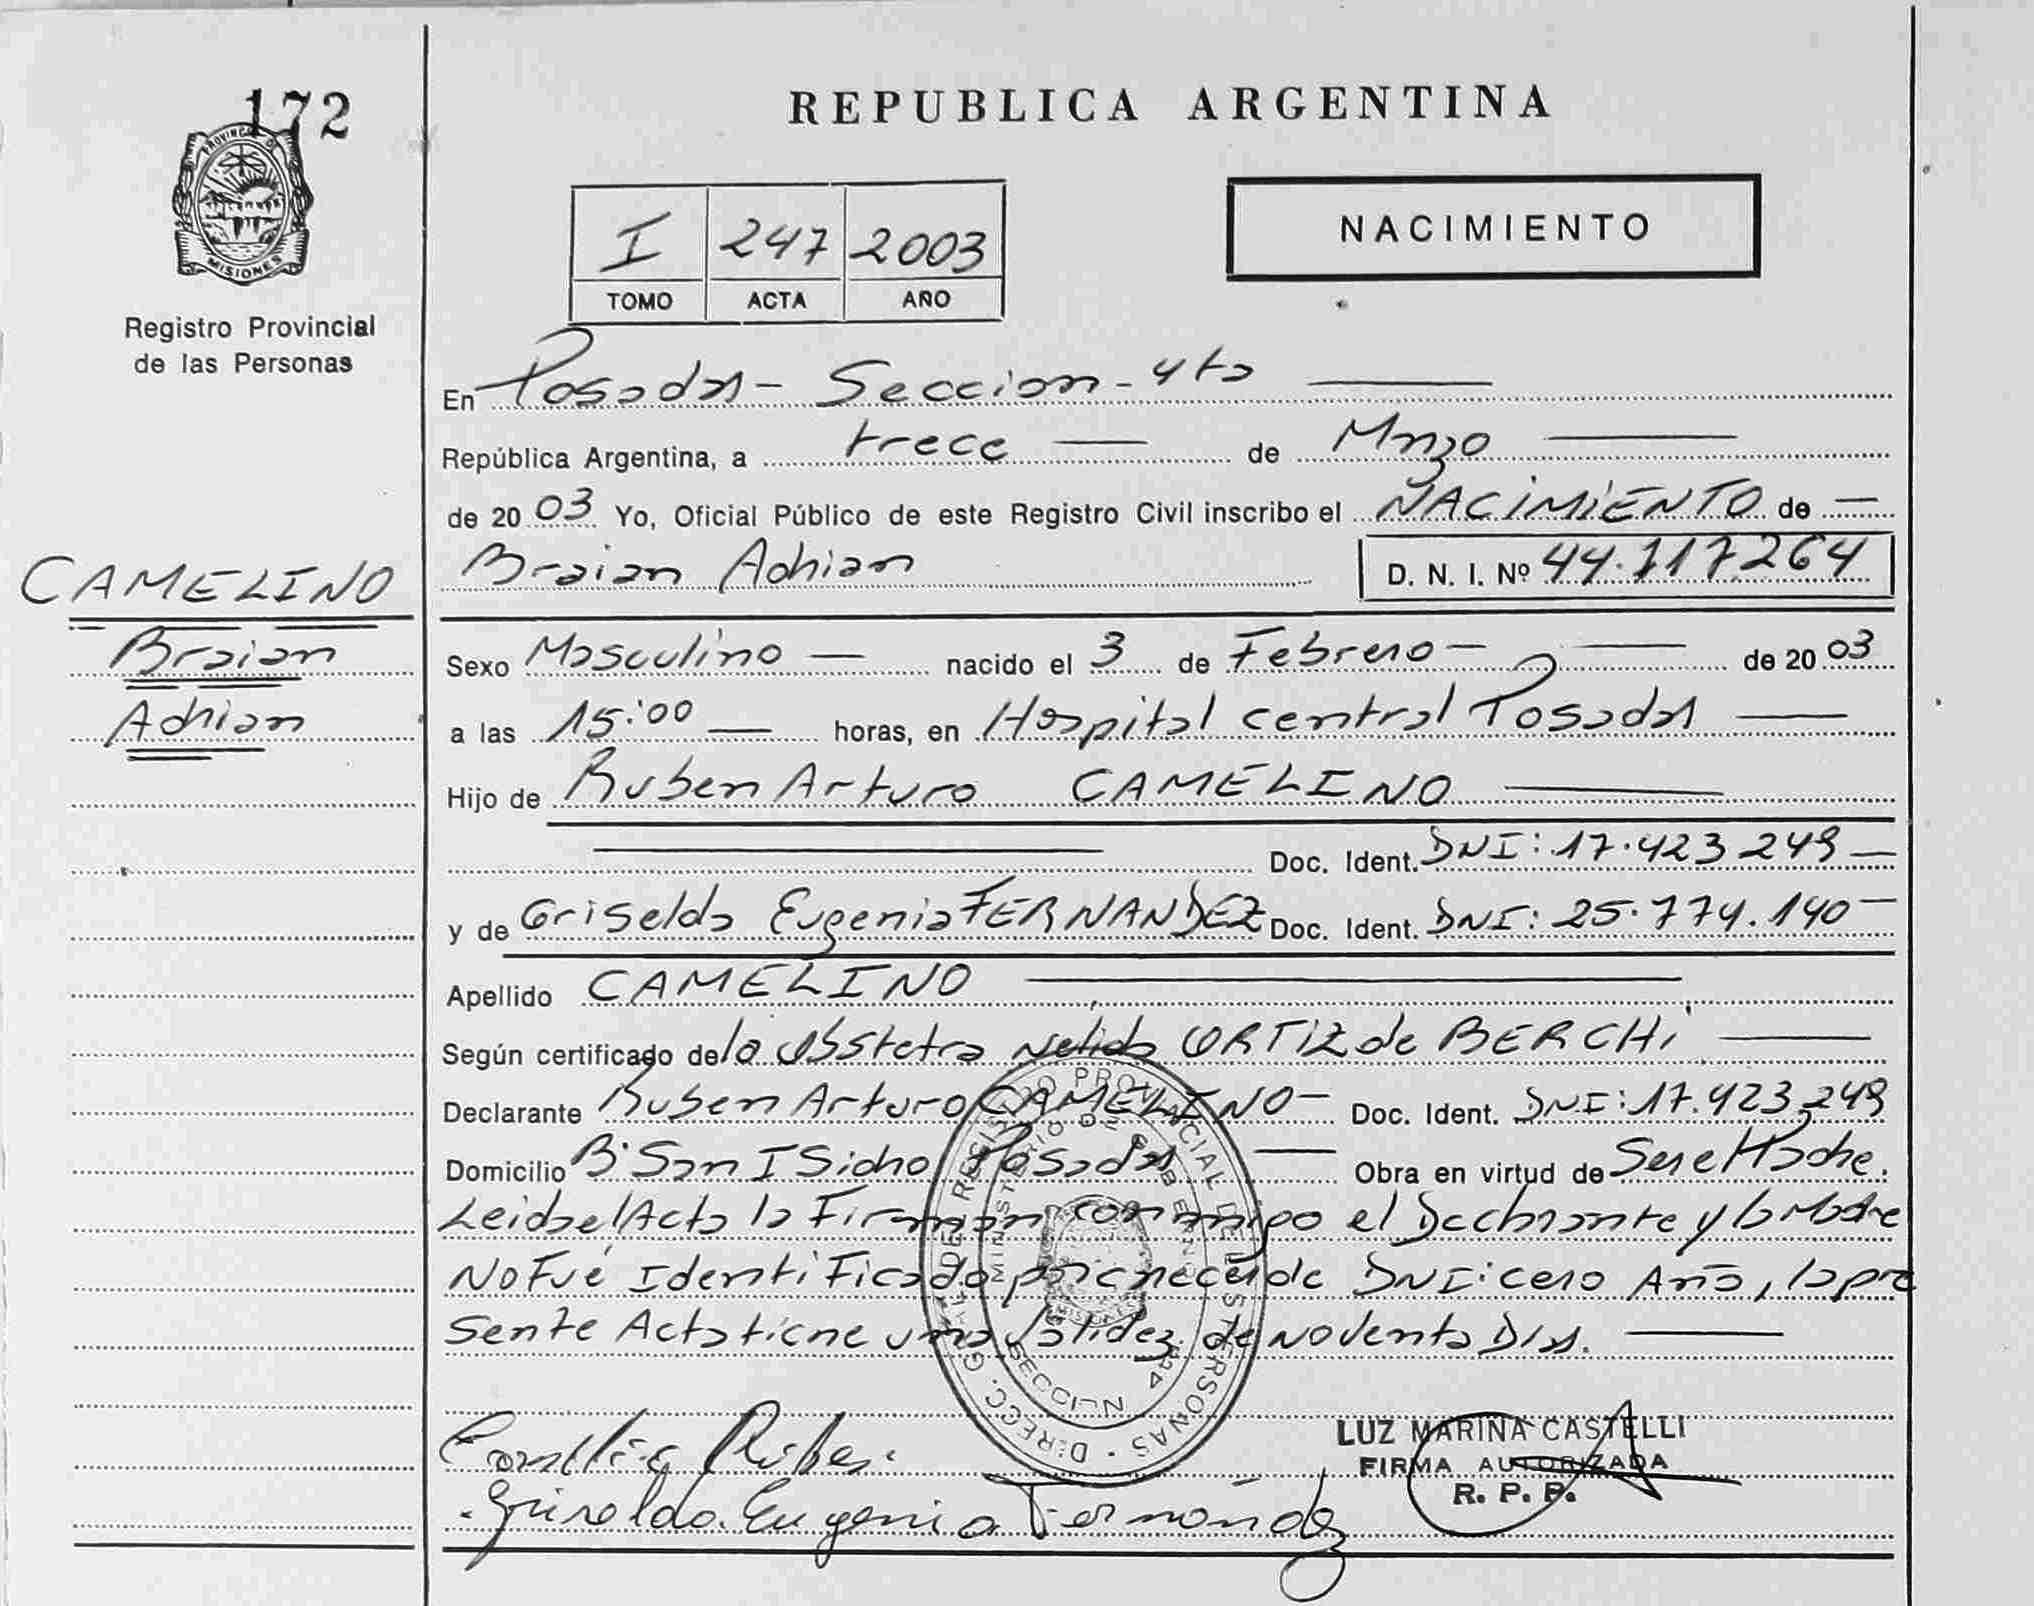 172
PROVINCIA DE
MISIONES
Registro Provincial
de las Personas
CAMELINO
Braian
Adrian
REPUBLICA ARGENTINA
I 247 2003
TOMO ACTA AÑO
NACIMIENTO
En Posadas - Seccion - 4ta
República Argentina, a trece de Marzo
de 2003 Yo, Oficial Público de este Registro Civil inscribo el NACIMIENTO de
Braian Adrian D. N. I. Nº 44.117.264
Sexo Masculino nacido el 3 de Febrero de 2003
a las 15:00 horas, en Hospital central Posadas
Hijo de Ruben Arturo CAMELINO
Doc. Ident. DNI: 17.423249
y de Griselda Eugenia FERNANDEZ Doc. Ident. DNI: 25.774.140
Apellido CAMELINO
Según certificado de la Obstetra Nelida ORTIZ de BERCHi
Declarante Ruben Arturo CAMELINO Doc. Ident. DNI: 17.423,249
Domicilio B: San ISidro Posadas Obra en virtud de
Leida el Acta la Firman conmigo el Declarante y la Madre
No Fué IdentiFicado de DNI: cero Año, la pre
sente Acta tiene una Validez de Noventa Dias.
DIRECC. GRAL. DEL REGISTRO PROVINCIAL DE LAS PERSONAS
MINISTERIO DE GOBIERNO
SECCION 4ta
Ruben
Griselda Eugenia Fernández
LUZ MARINA CASTELLI
FIRMA AUTORIZADA
R. P. P.